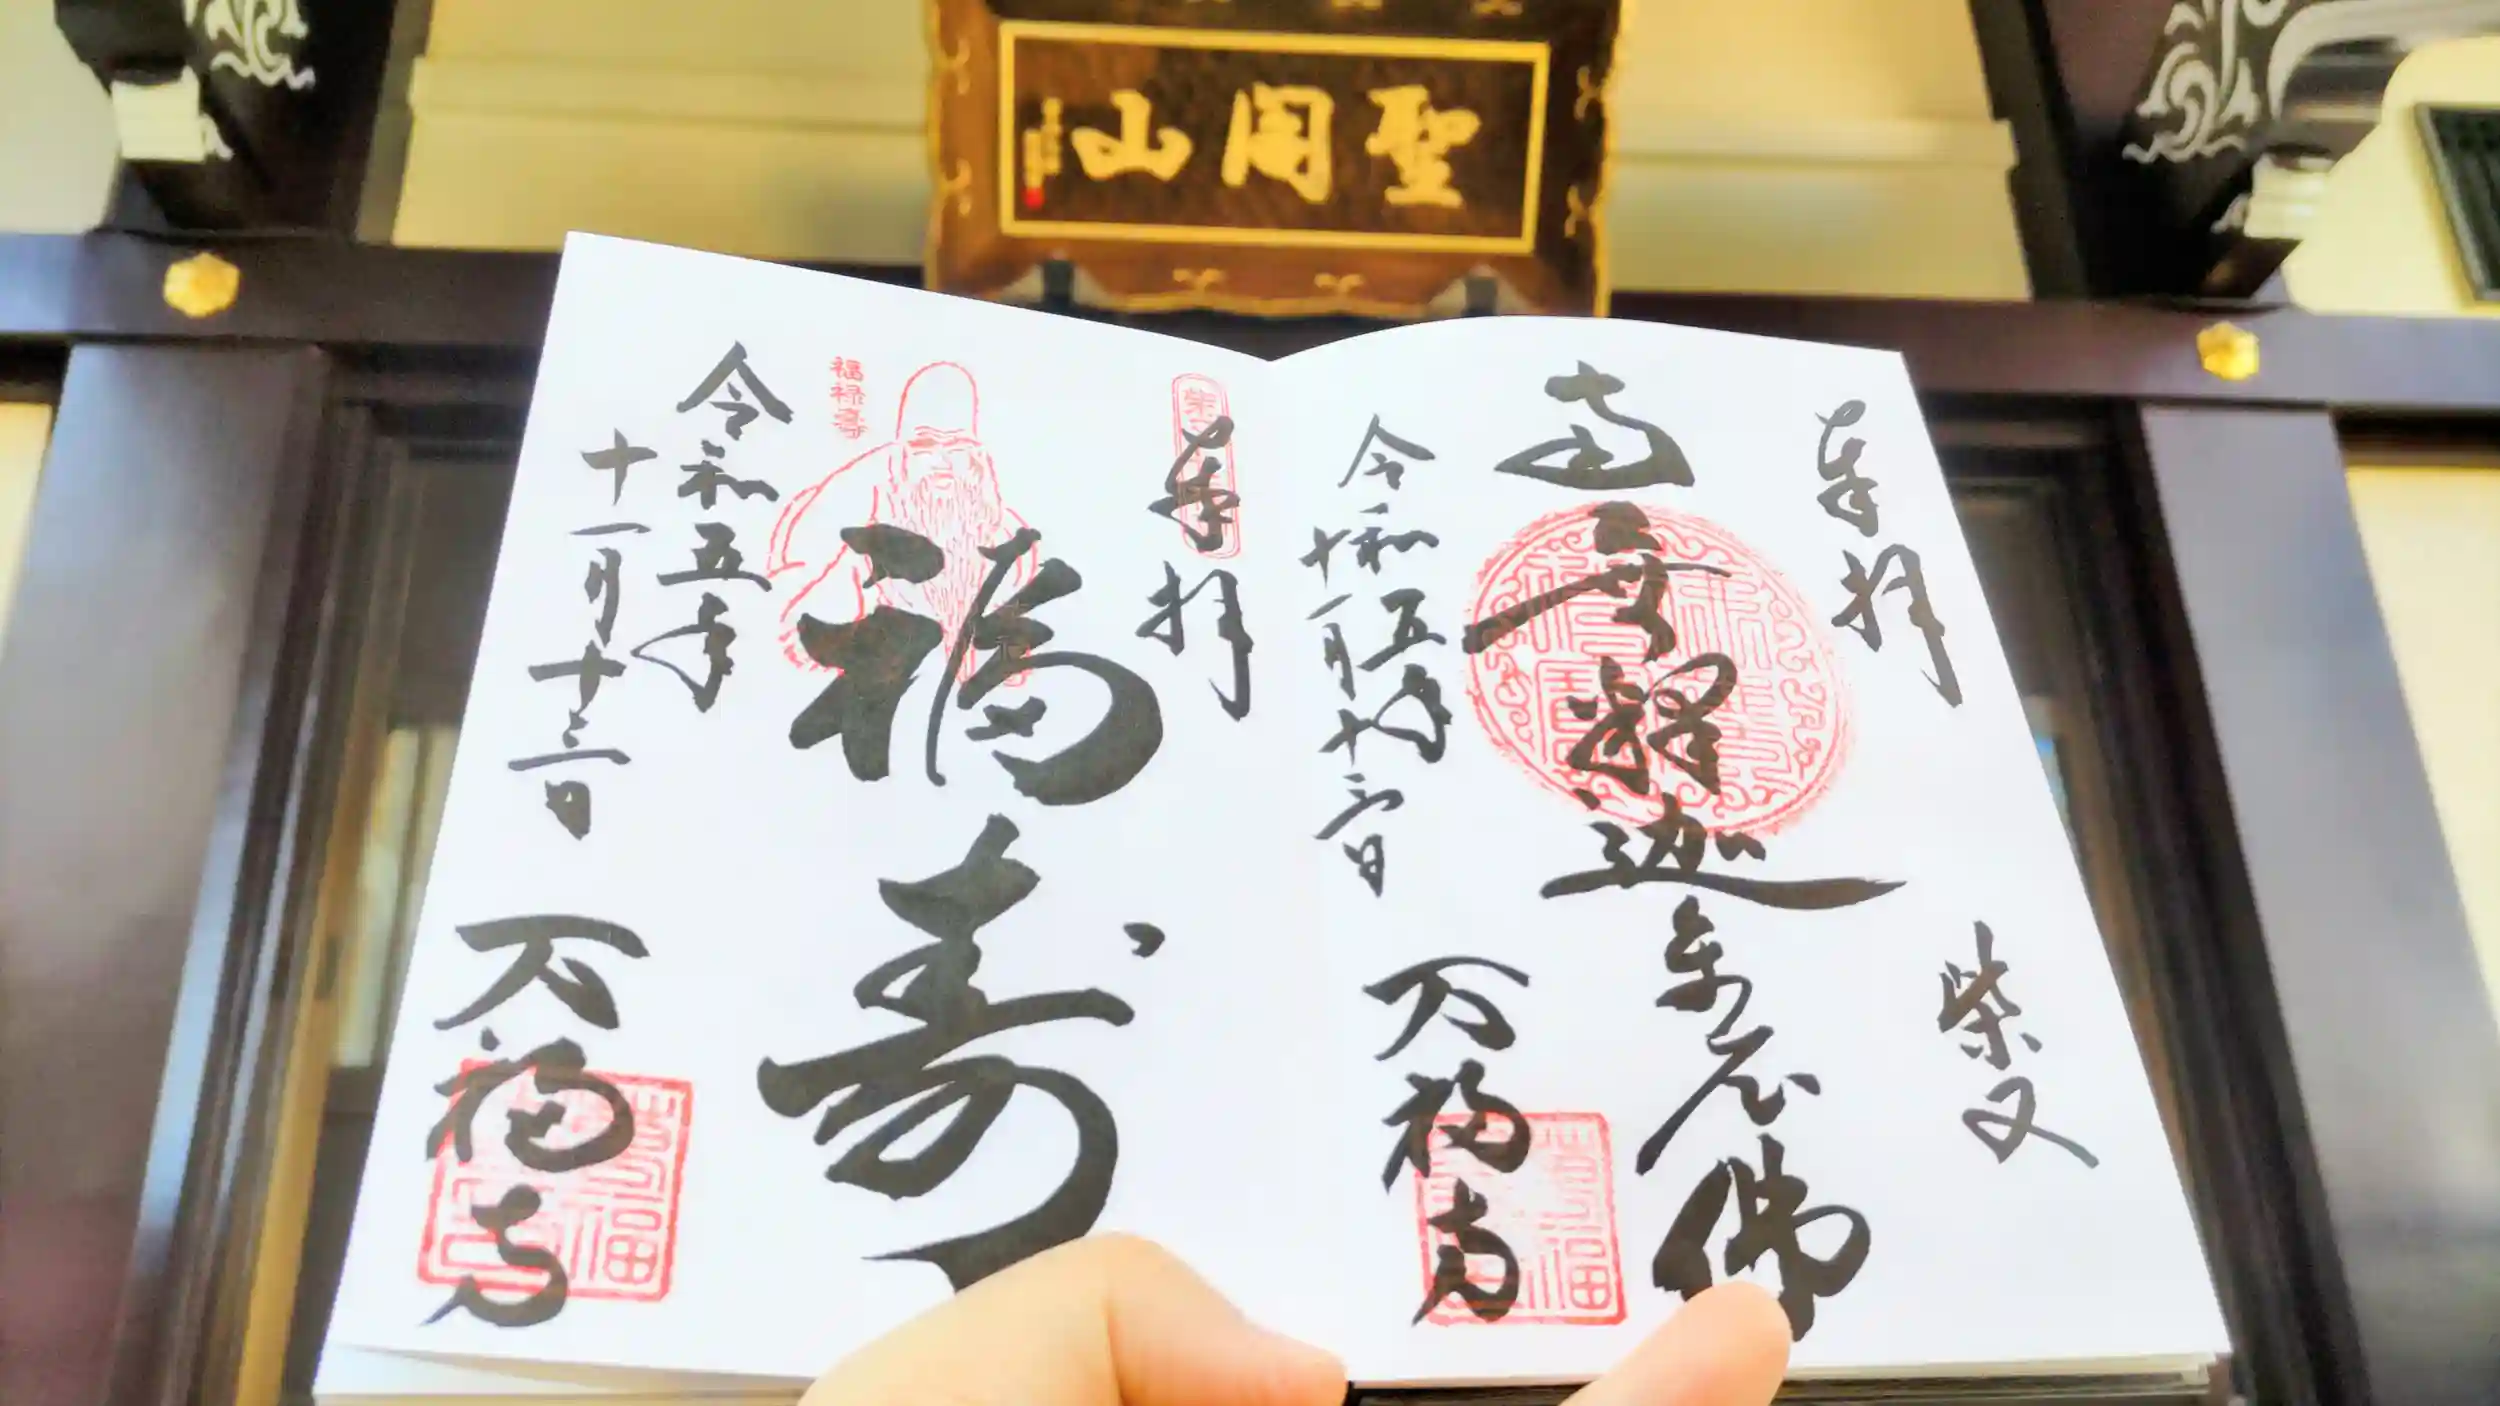 聖閣山
奉拝
柴又
南無釋迦牟尼佛
令和五年
十一月十三日
万福寺
奉拝
福寿
福禄寿
令和五年
十一月十三日
万福寺